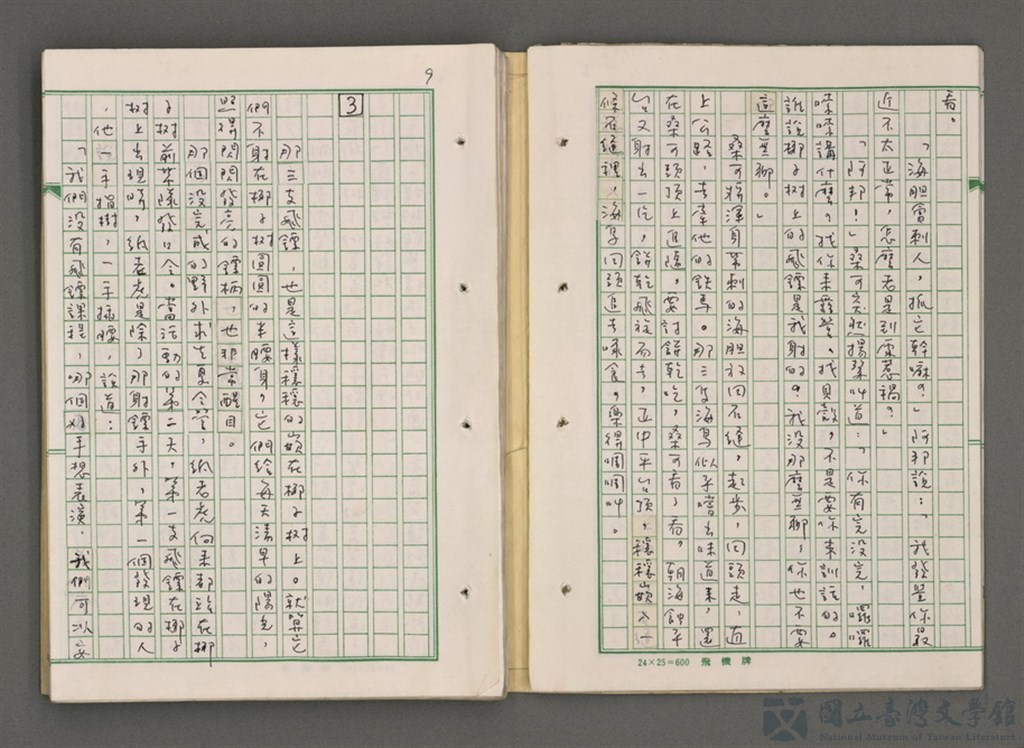 看。
「海胆會刺人，抓它幹嘛？」阿邦說：「我發星你最
近不太正常，怎麼老是到處惹禍？」
「阿邦！」桑可突然揚聲叫道：「你有完沒完，囉囉
嗦嗦講什麼。找你來露營、找貝殼，不是要你來訓話的。
誰說椰子樹上的飛鏢是我射的？我沒那麼無聊，你也不要
這麼無聊。」
桑可將渾身帶刺的海胆放回石縫，起步，回頭走，直
上公路，去牽他的鉄馬。那三隻海鳥似乎嗜出味道來，還
在桑可頭頂上追隨，要討餅乾吃，桑可看了看，朝海蝕平
台又射出一片，餅乾飛旋而去，正中平台頂，穩穩嵌入一
條石縫裡，海鳥回頭追去啄食，樂得啁啁叫。
24×25=600 飛機牌
9
3
那三支飛鏢，也是這樣穩穩的嵌在椰子樹上。就算它
們不射在椰子樹圓圓的半腰身，它們給每天清早的陽光，
照得閃閃發亮的鏢柄，也非常醒目。
那個沒完成的野外求生夏令營，紙老虎向來都站在椰
子樹前某隊發口令。當活動的第二天，第一支飛鏢在椰子
樹上出現時，紙老虎是除了那射鏢手外，第一個發現的人
，他一手指樹，一手插腰，說道：
「我們沒有飛鏢課程，哪個好手想表演，我們可以安
國立臺灣文學館
National Museum of Taiwan Literature